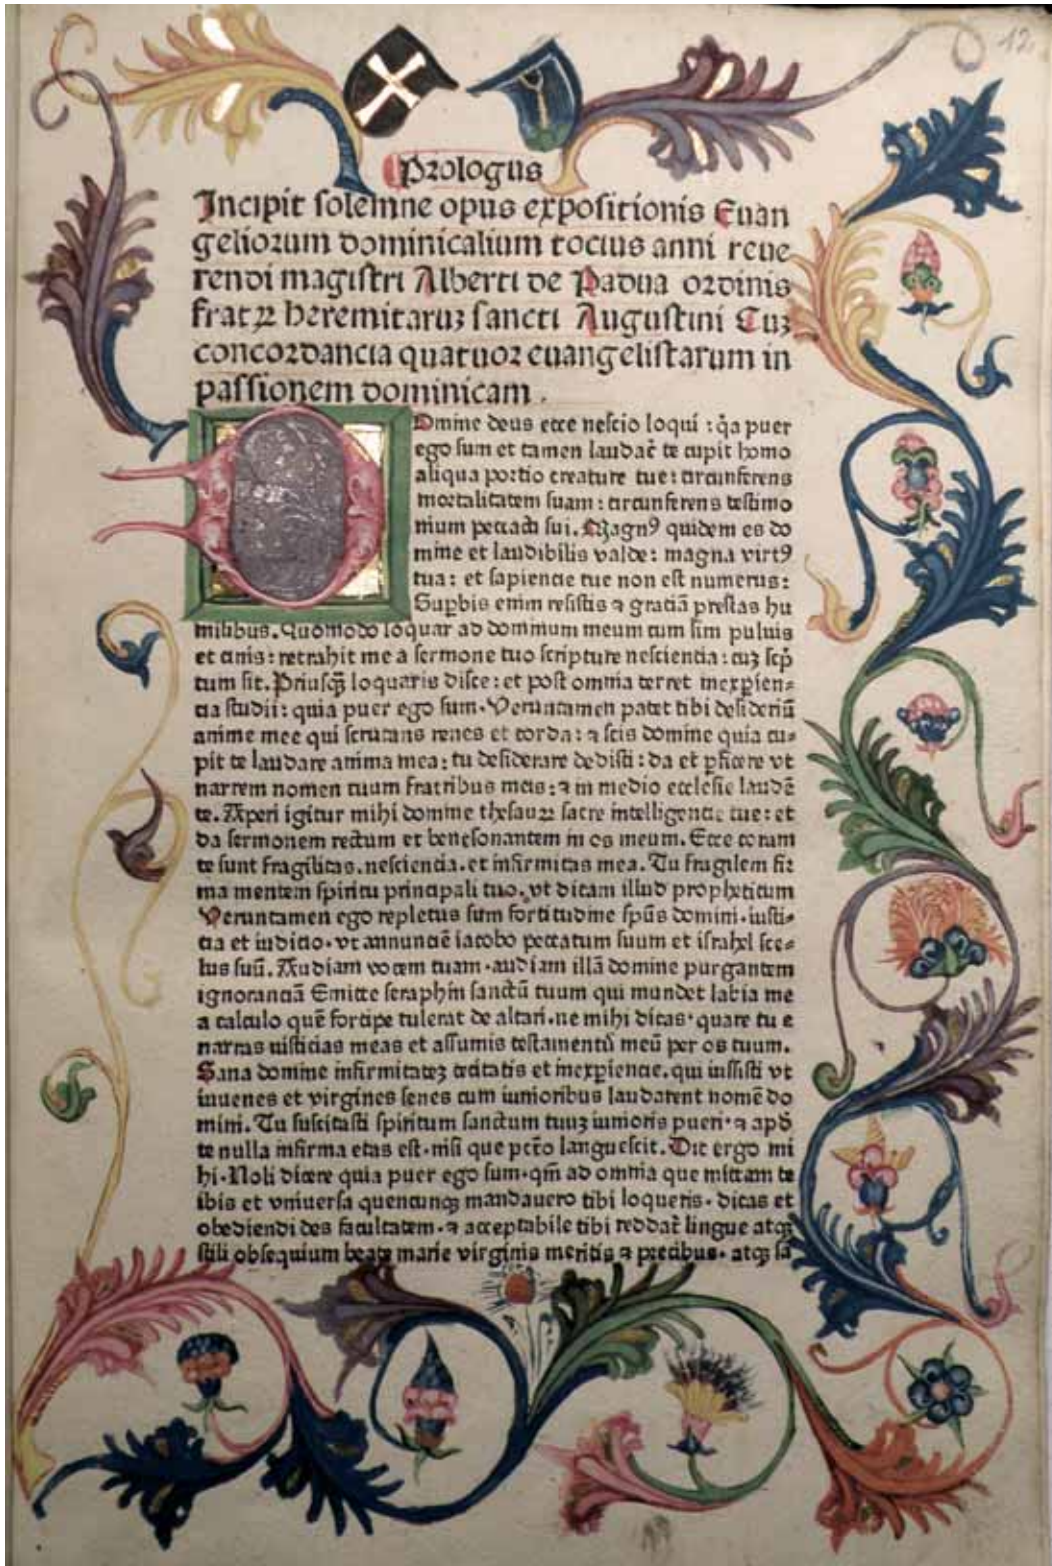 12.
Prologus
Incipit solemne opus expositionis Euan
geliorum dominicalium tocius anni reue
rendi magistri Alberti de Padua ordinis
fratꝝ heremitaruꝫ sancti Augustini Cuꝫ
concordancia quatuor euangelistarum in
passionem dominicam.
Domine deus ecce nescio loqui: q̃a puer
ego sum et tamen laudar̃ te cupit homo
aliqua portio creature tue: circunferens
mortalitatem suam: circunferens testimo
nium peccati sui. Magnꝰ quidem es do
mine et laudibilis valde: magna virtꝰ
tua: et sapiencie tue non est numerus:
Suꝑbis enim resistis ⁊ graciã prestas hu
milibus. Quomodo loquar ad dominum meum cum sim puluis
et cinis: retrahit me a sermone tuo scripture nesciencia: cuꝫ scp̃
tum sit. Priusqꝫ loquaris disce: et post omnia terret inexꝑien⸗
cia studii: quia puer ego sum. Veruntamen patet tibi desideriũ
anime mee qui scrutans renes et corda: ⁊ scis domine quia cu⸗
pit te laudare anima mea: tu desiderare dedisti: da et ꝑficere vt
narrem nomen tuum fratribus meis: ⁊ in medio ecclesie laudẽ
te. Aperi igitur mihi domine thesauꝝ sacre intelligencie tue: et
da sermonem rectum et benesonantem in os meum. Ecce coram
te sunt fragilitas. nesciencia. et infirmitas mea. Tu fragilem fir
ma mentem spiritu principali tuo. vt dicam illud propheticum
Veruntamen ego repletus sum fortitudine spũs domini. iusti⸗
cia et iudicio. vt annunciẽ iacobo peccatum suum et israhel sce⸗
lus suũ. Audiam vocem tuam. audiam illã domine purgantem
ignoranciã Emitte seraphin sanctũ tuum qui mundet labia me
a calculo quẽ forcipe tulerat de altari. ne mihi dicas. quare tu e
narras iusticias meas et assumis testamentũ meũ per os tuum.
Sana domine infirmitateꝫ etatis et inexꝑiencie. qui iussisti vt
iuuenes et virgines senes cum iunioribus laudarent nomẽ do
mini. Tu suscitasti spiritum sanctum tuuꝫ iunioris pueri. ⁊ apd̃
te nulla infirma etas est. nisi que pctõ languescit. Dic ergo mi
hi. Noli dicere quia puer ego sum. qm̃ ad omnia que mittam te
ibis et vniuersa quencunqꝫ mandauero tibi loqueris. dicas et
obediendi des facultatem. ⁊ acceptabile tibi reddat̃ lingue atqꝫ
stili obsequium beate marie virginis meritis ⁊ precibus. atqꝫ sã